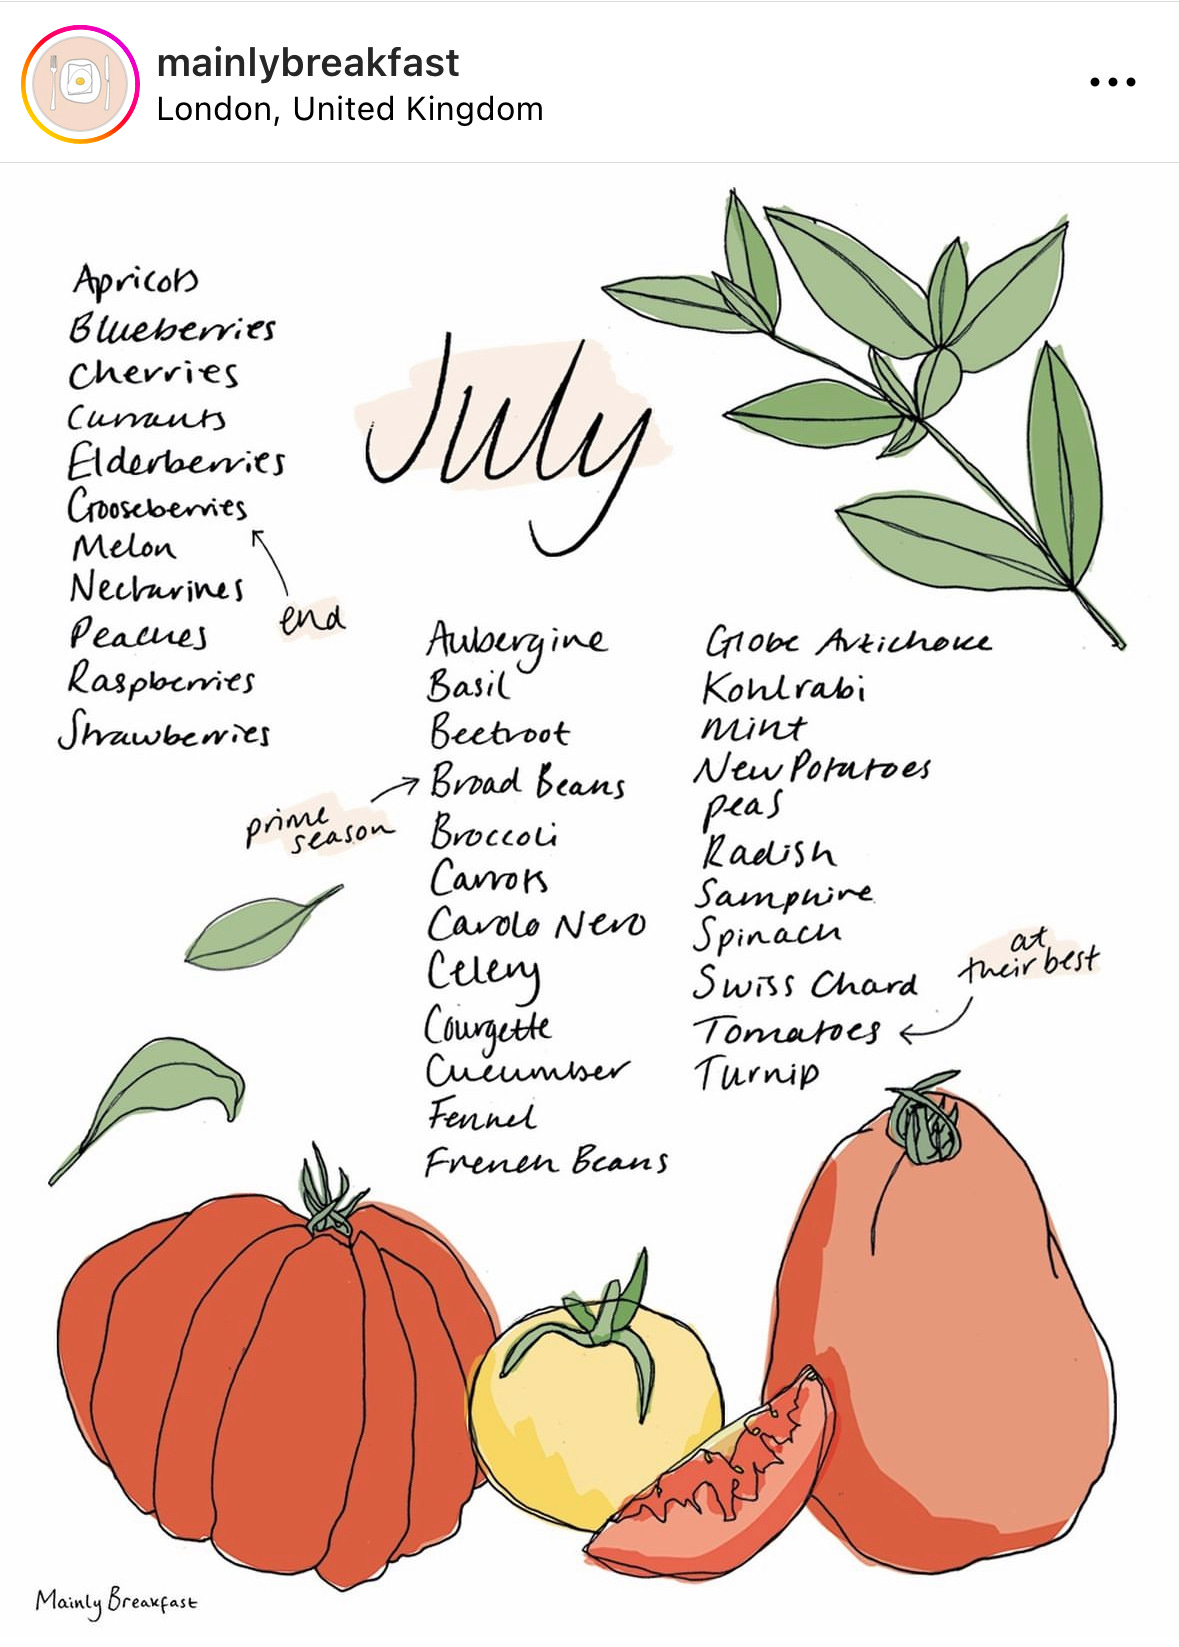 mainlybreakfast
London, United Kingdom
July
Apricots
Blueberries
Cherries
Currants
Elderberries
Gooseberries
end
Melon
Nectarines
Peaches
Raspberries
Strawberries
Aubergine
Basil
Beetroot
Broad Beans
prime
season
Broccoli
Carrots
Cavolo Nero
Celery
Courgette
Cucumber
Fennel
French Beans
Globe Artichoke
Kohlrabi
Mint
New Potatoes
peas
Radish
Samphire
Spinach
Swiss Chard
Tomatoes
at
their best
Turnip
Mainly Breakfast